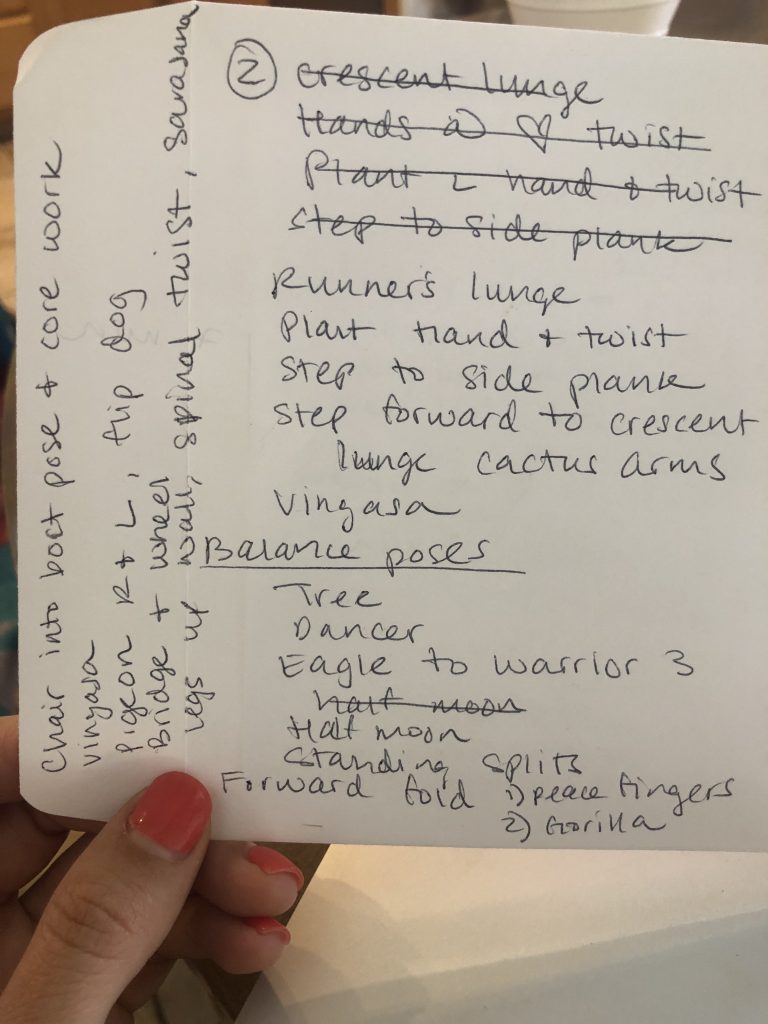 ② crescent lunge
Hands @ ♡ twist
Plant L hand & twist
step to side plank
Runner's lunge
Plant Hand + twist
step to side plank
step forward to crescent
lunge cactus arms
Vinyasa
Balance poses
Tree
Dancer
Eagle to warrior 3
half moon
Half moon
Standing splits
Forward fold 1) peace fingers
2) Gorilla
Chair into boat pose + core work
vinyasa
Pigeon R + L, flip dog
Bridge + wheel
legs up wall, spinal twist, savasana